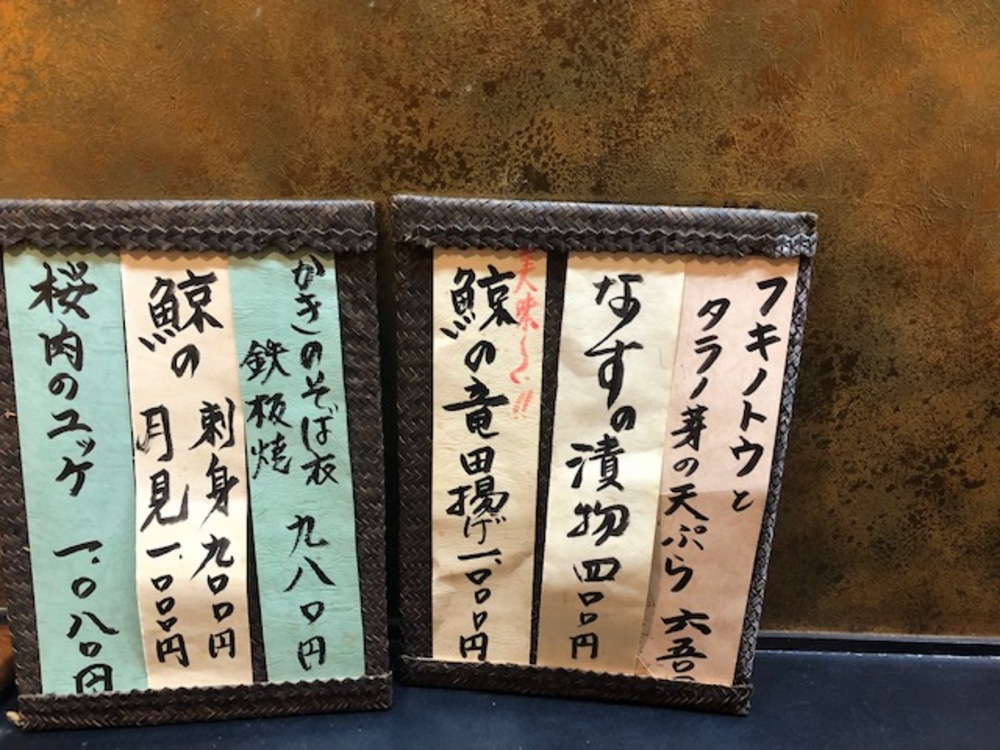 フキノトウと
タラノ芽の天ぷら 六五〇
なすの漬物 四〇〇円
美味しい!!
鯨の竜田揚げ 一、〇〇〇円
かきのそば衣 九八〇円
鉄板焼
鯨の 刺身 九〇〇円
月見 一、〇〇〇円
桜肉のユッケ 一、〇八〇円